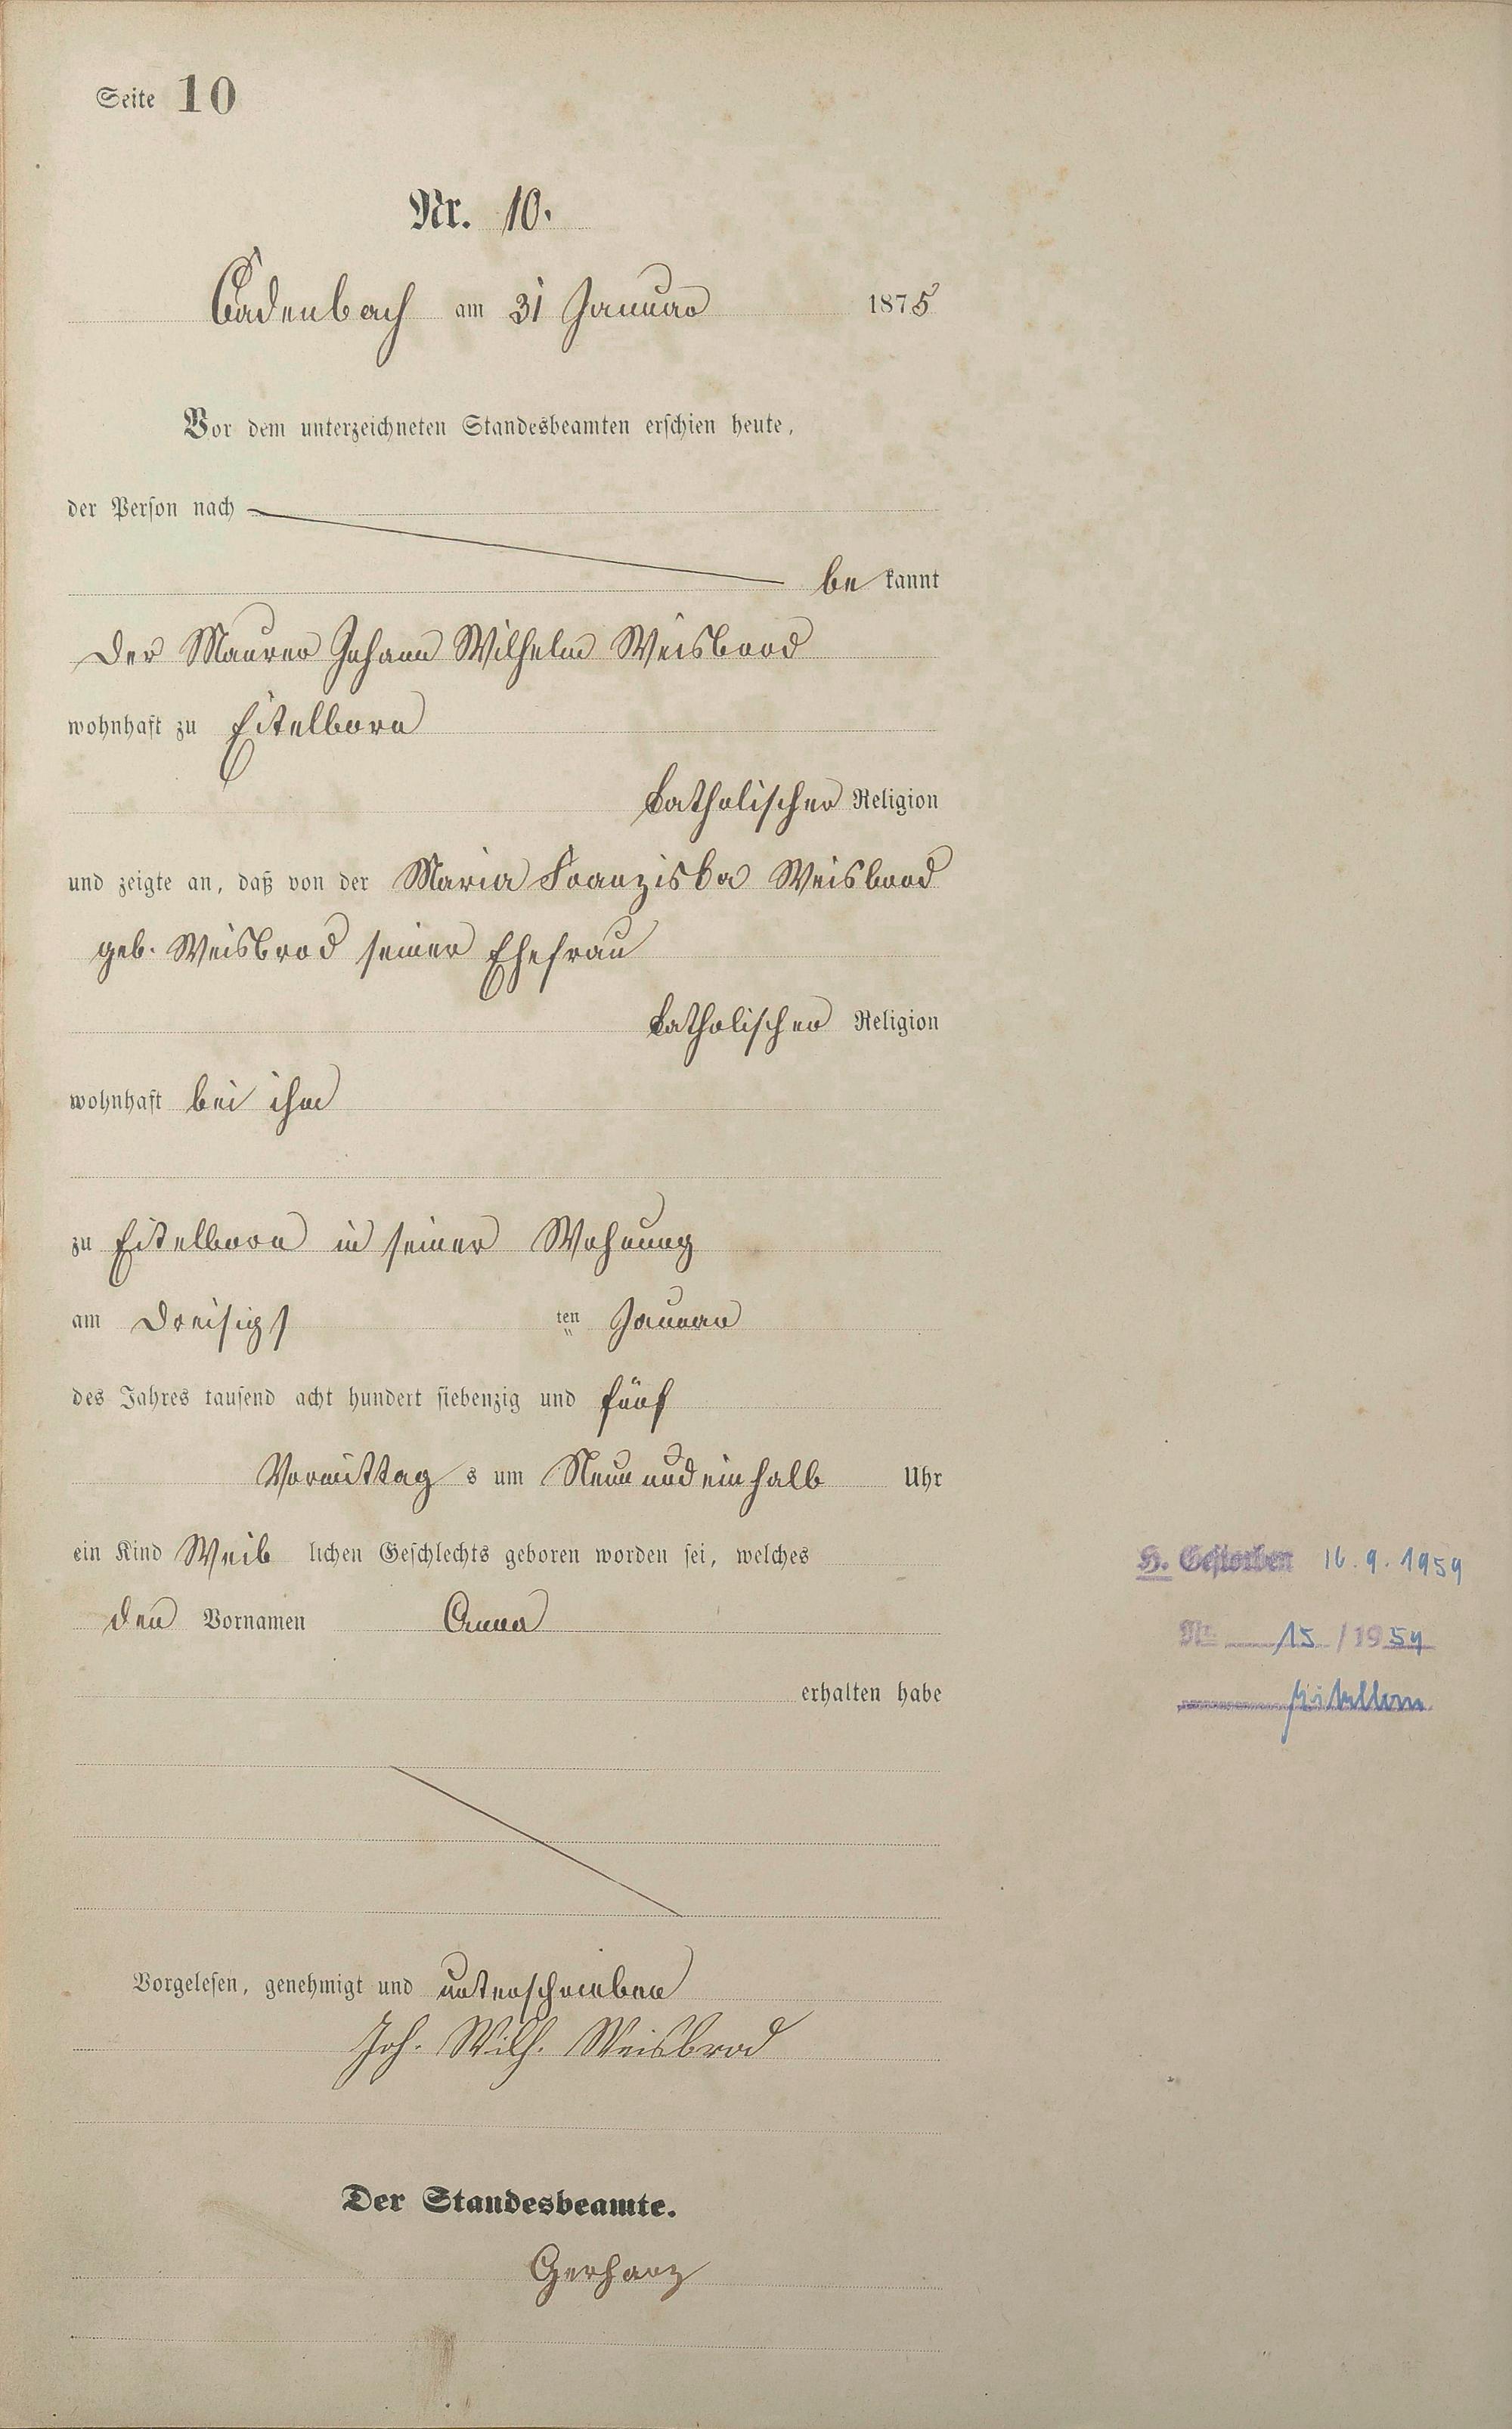 Seite 10
Nr. 10.
Cadenbach am 31 Januar 1875
Vor dem unterzeichneten Standesbeamten erschien heute,
der Person nach
be kannt
Der Maurer Johann Wilhelm Weisbrod
wohnhaft zu Eitelborn
katholischer Religion
und zeigte an, daß von der Maria Franziska Weisbrod
geb. Weisbrod seiner Ehefrau
katholischer Religion
wohnhaft bei ihm
zu Eitelborn in seiner Wohnung
am Dreisigs ten Januar
des Jahres tausend acht hundert siebenzig und fünf
Vormittag s um Neun und ein halb Uhr
ein Kind Weib lichen Geschlechts geboren worden sei, welches
den Vornamen Anna
erhalten habe
H. Gestorben 16.9.1959
Nr. 15 / 1959
Eitelborn
Vorgelesen, genehmigt und unterschrieben
Joh. Wilh. Weisbrod
Der Standesbeamte.
Gerharz